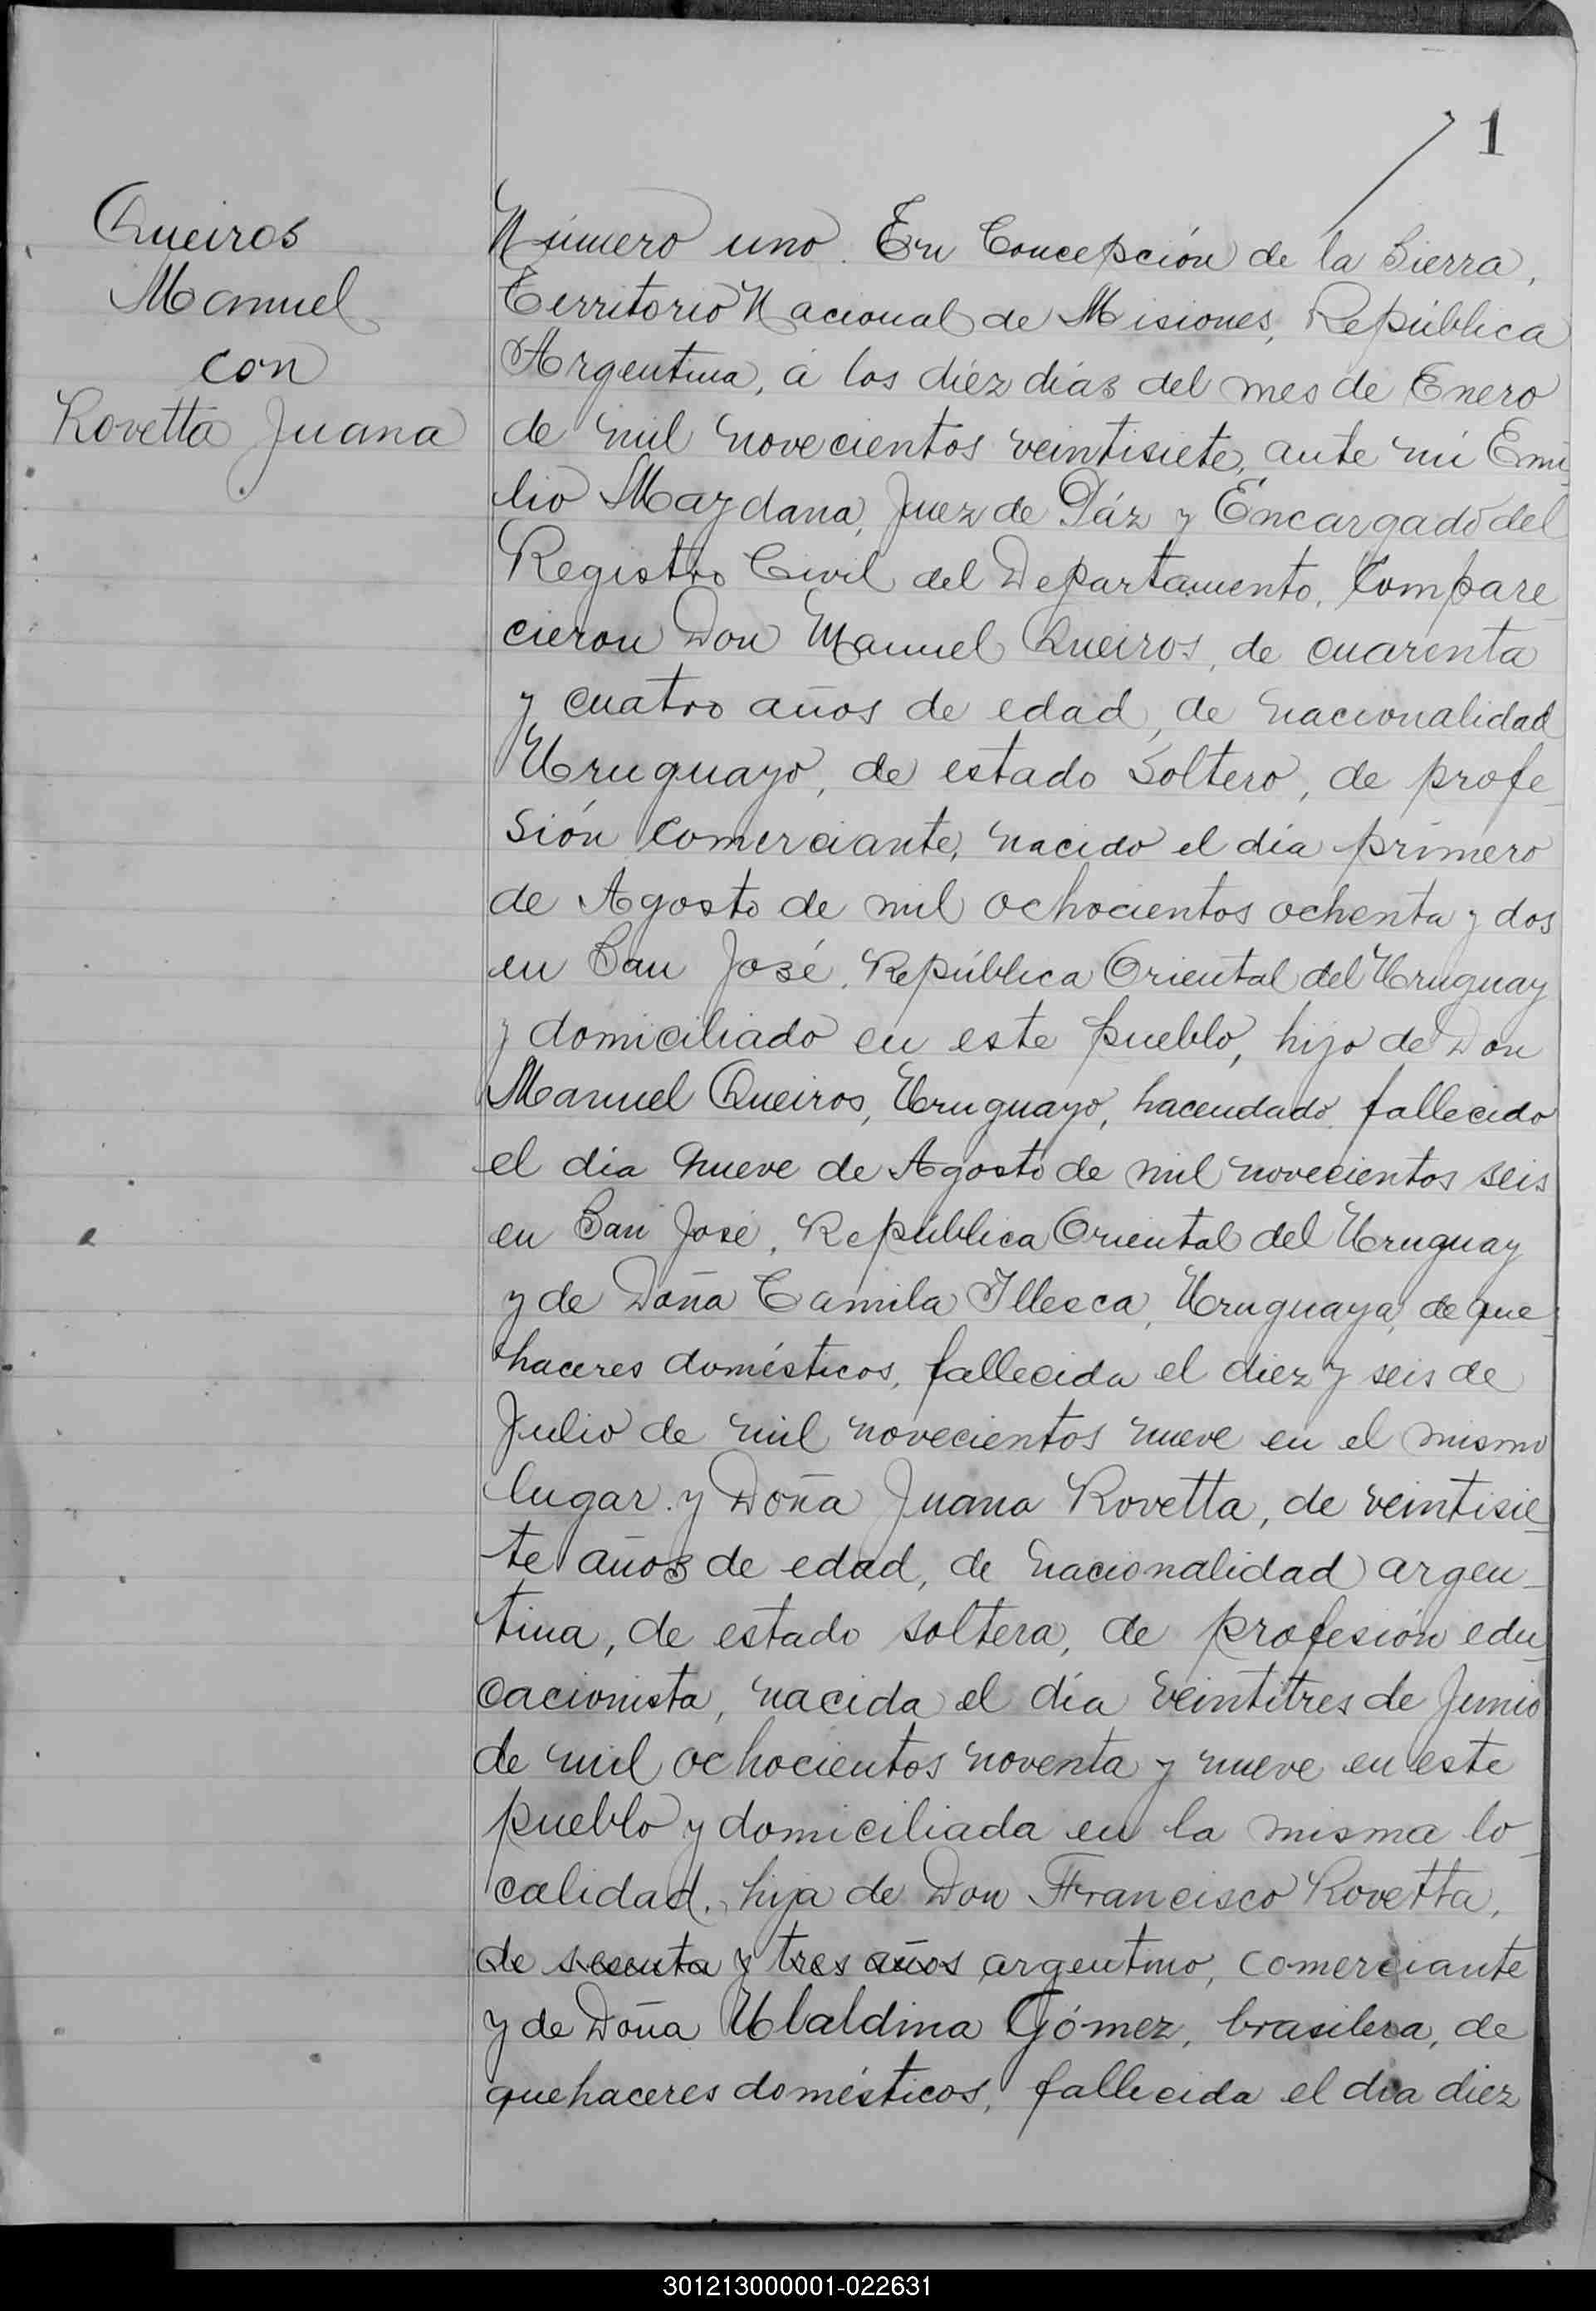 1
Queiros
Manuel
con
Rovetta Juana
Número uno. En Concepción de la Sierra,
Territorio Nacional de Misiones, República
Argentina, á los diéz días del mes de Enero
de mil novecientos veintisiete, ante mi Emi
lio Mazdana, Juez de Páz y Encargado del
Registro Civil del Departamento, Compare
cieron Don Manuel Queiros, de cuarenta
y cuatro años de edad, de nacionalidad
Uruguayo, de estado soltero, de profe
sión comerciante, nacido el día primero
de Agosto de mil ochocientos ochenta y dos
en San José, República Oriental del Uruguay
y domiciliado en este pueblo, hijo de Don
Manuel Queiros, Uruguayo, hacendado, fallecido
el día nueve de Agosto de mil novecientos seis
en San José, República Oriental del Uruguay
y de Doña Camila Illesca, Uruguaya, de que
haceres domésticos, fallecida el diez y seis de
Julio de mil novecientos nueve en el mismo
lugar. y Doña Juana Rovetta, de veintisie
te años de edad, de nacionalidad argen
tina, de estado soltera, de profesión edu
cacionista, nacida el día veintitres de Junio
de mil ochocientos noventa y nueve en este
pueblo y domiciliada en la misma lo
calidad, hija de Don Francisco Rovetta,
de sesenta y tres años argentino, comerciante
y de Doña Ubaldina Gómez, brasilera, de
quehaceres domésticos, fallecida el día diez
301213000001-022631